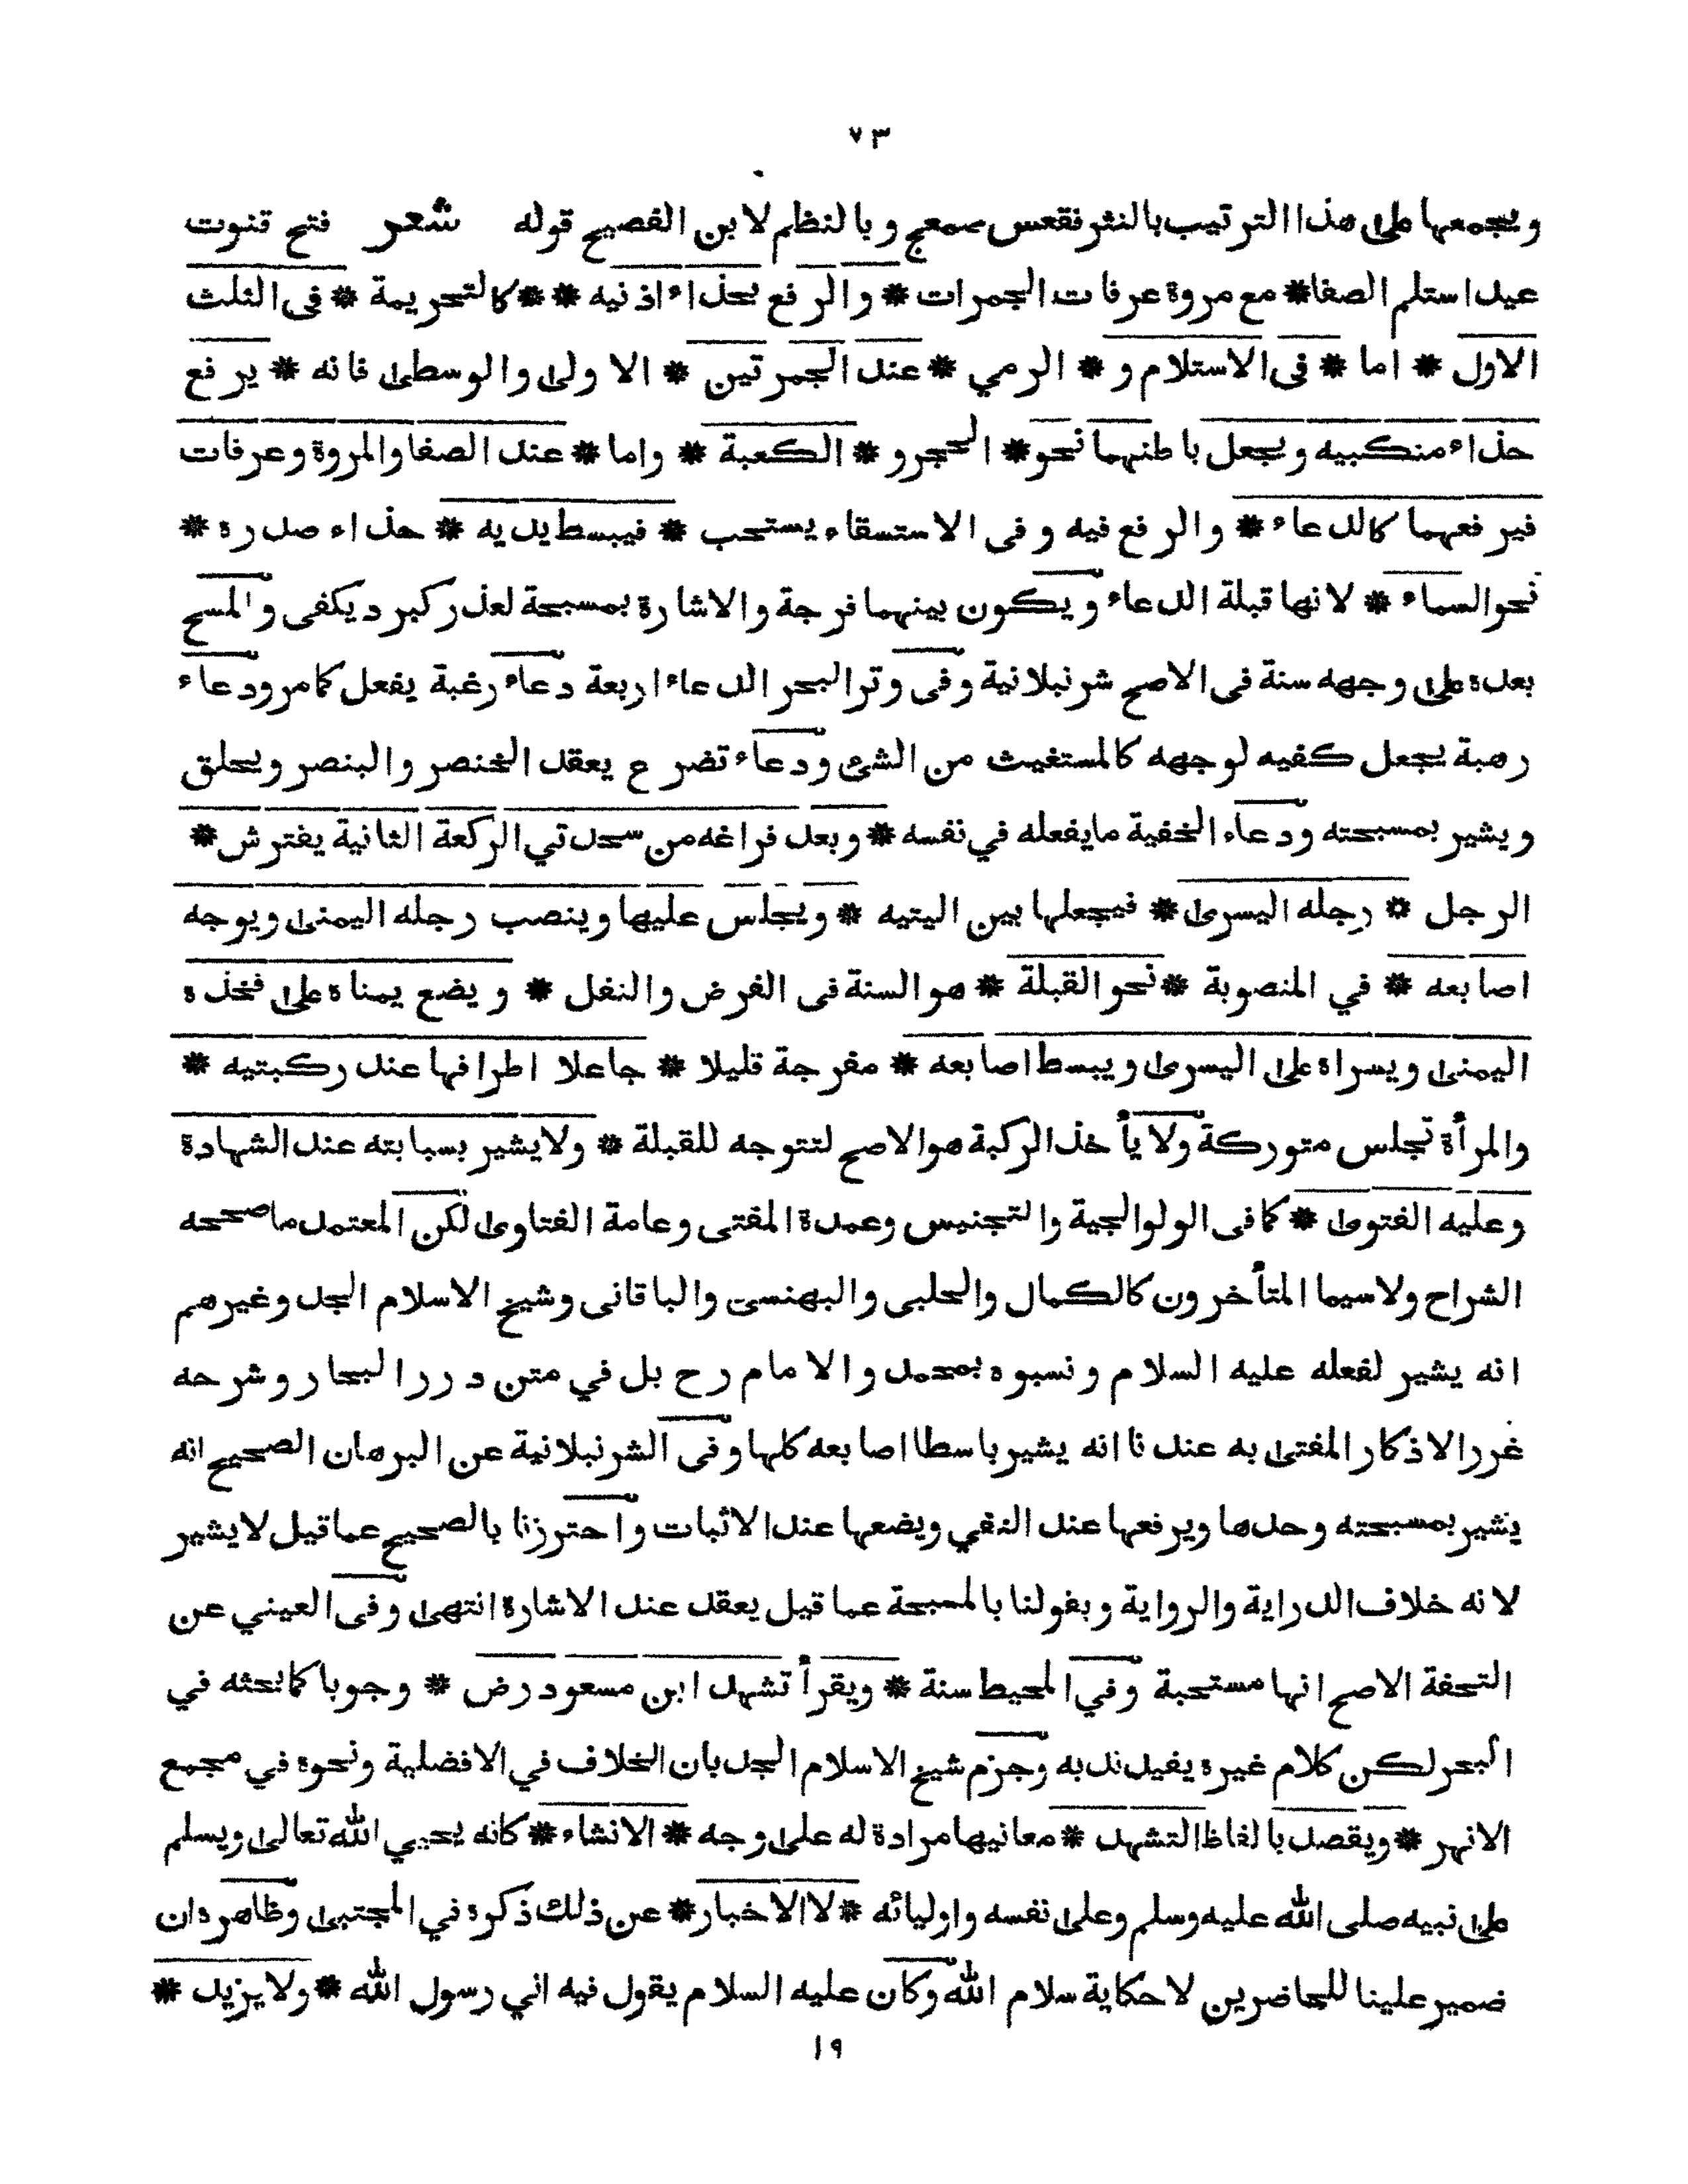 ٧٣
ويجمعها على هذا الترتيب بالنثر فقعس صمعج وبالنظم لابن الفصيح قوله شعر فتح قنوت
عيد استلم الصفا * مع مروة عرفات الجمرات * والرفع بحذاء اذنيه * * كالتحريمة * فى الثلث
الاول * اما * فى الاستلام و * الرمي * عند الجمرتين * الاولى والوسطى فانه * يرفع
حذاء منكبيه ويجعل باطنهما نحو * الحجر و * الكعبة * واما * عند الصفا والمروة وعرفات
فيرفعهما كالدعاء * والرفع فيه وفى الاستسقاء يستحب * فيبسط يديه * حذاء صدره *
نحو السماء * لانها قبلة الدعاء ويكون بينهما فرجة والاشارة بمسبحة لعذر كبرد يكفى والمسح
بعده على وجهه سنة فى الاصح شرنبلانية وفى وتر البحر الدعاء اربعة دعاء رغبة يفعل كمامر ودعاء
رهبة يجعل كفيه لوجهه كالمستغيث من الشئ ودعاء تضرع يعقد الخنصر والبنصر ويحلق
ويشير بمسبحته ودعاء الخفية مايفعله في نفسه * وبعد فراغه من سجدتي الركعة الثانية يفترش *
الرجل * رجله اليسرى * فيجعلها بين اليتيه * ويجلس عليها وينصب رجله اليمنى ويوجه
اصابعه * في المنصوبة * نحو القبلة * هو السنة فى الفرض والنفل * ويضع يمناه على فخذه
اليمنى ويسراه على اليسرى ويبسط اصابعه * مفرجة قليلا * جاعلا اطرافها عند ركبتيه *
والمرأة تجلس متوركة ولا يأخذ الركبة هو الاصح لتتوجه للقبلة * ولايشير بسبابته عند الشهادة
وعليه الفتوى * كما فى الولوالجية والتجنيس وعمدة المفتى وعامة الفتاوى لكن المعتمد ماصححه
الشراح ولاسيما المتأخرون كالكمال والحلبى والبهنسى والباقانى وشيخ الاسلام الجد وغيرهم
انه يشير لفعله عليه السلام ونسبوه بمحمد والامام رح بل في متن درر البحار وشرحه
غرر الاذكار المفتى به عندنا انه يشير باسطا اصابعه كلها وفى الشرنبلانية عن البرهان الصحيح انه
يشير بمسبحته وحدها ويرفعها عند النفي ويضعها عند الاثبات واحترزنا بالصحيح عما قيل لا يشير
لانه خلاف الدراية والرواية وبقولنا بالمسبحة عما قيل يعقد عند الاشارة انتهى وفى العيني عن
التحفة الاصح انها مستحبة وفي المحيط سنة * ويقرأ تشهد ابن مسعود رض * وجوبا كمابحثه في
البحر لكن كلام غيره يفيد ندبه وجزم شيخ الاسلام الجد بان الخلاف في الافضلية ونحوه في مجمع
الانهر * ويقصد بالفاظ التشهد * معانيها مرادة له على وجه * الانشاء * كانه يحيي الله تعالى ويسلم
على نبيه صلى الله عليه وسلم وعلى نفسه واوليائه * لا الاخبار * عن ذلك ذكره في المجتبى وظاهره ان
ضمير علينا للحاضرين لا حكاية سلام الله وكان عليه السلام يقول فيه اني رسول الله * ولا يزيد *
١٩